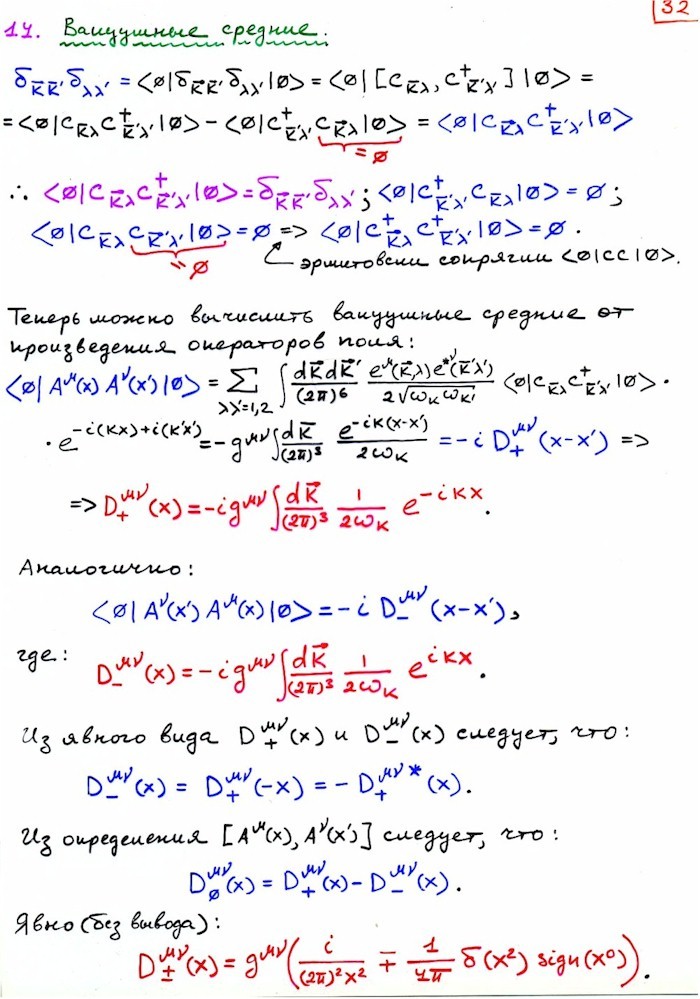 32
14. Вакуумные средние.
δ_{k⃗k⃗'} δ_{λλ'} = ⟨0|δ_{k⃗k⃗'} δ_{λλ'}|0⟩ = ⟨0|[c_{k⃗λ}, c⁺_{k⃗'λ'}]|0⟩ =
= ⟨0|c_{k⃗λ} c⁺_{k⃗'λ'}|0⟩ − ⟨0|c⁺_{k⃗'λ'} c_{k⃗λ}|0⟩ = ⟨0|c_{k⃗λ} c⁺_{k⃗'λ'}|0⟩
= 0
∴ ⟨0|c_{k⃗λ} c⁺_{k⃗'λ'}|0⟩ = δ_{k⃗k⃗'} δ_{λλ'}; ⟨0|c⁺_{k⃗'λ'} c_{k⃗λ}|0⟩ = 0;
⟨0|c_{k⃗λ} c_{k⃗'λ'}|0⟩ = 0 => ⟨0|c⁺_{k⃗λ} c⁺_{k⃗'λ'}|0⟩ = 0.
= 0 эрмитовски сопрягли ⟨0|cc|0⟩.
Теперь можно вычислить вакуумные средние от
произведения операторов поля:
⟨0|A^μ(x) A^ν(x')|0⟩ = ∑_{λλ'=1,2} ∫ dk⃗dk⃗'/(2π)⁶ e^μ(k⃗,λ)e*^ν(k⃗'λ')/2√(ω_k ω_k') ⟨0|c_{k⃗λ} c⁺_{k⃗'λ'}|0⟩ ·
· e^{-i(kx)+i(k'x')} = −g^{μν} ∫ dk⃗/(2π)³ e^{-ik(x-x')}/2ω_k = −i D₊^{μν}(x−x') =>
=> D₊^{μν}(x) = −i g^{μν} ∫ dk⃗/(2π)³ 1/2ω_k e^{-ikx}.
Аналогично:
⟨0|A^ν(x') A^μ(x)|0⟩ = −i D₋^{μν}(x−x'),
где:
D₋^{μν}(x) = −i g^{μν} ∫ dk⃗/(2π)³ 1/2ω_k e^{ikx}.
Из явного вида D₊^{μν}(x) и D₋^{μν}(x) следует, что:
D₋^{μν}(x) = D₊^{μν}(−x) = − D₊^{μν*}(x).
Из определения [A^μ(x), A^ν(x')] следует, что:
D₀^{μν}(x) = D₊^{μν}(x) − D₋^{μν}(x).
Явно (без вывода):
D_±^{μν}(x) = g^{μν}(i/(2π)²x² ∓ 1/4π δ(x²) sign(x⁰)).